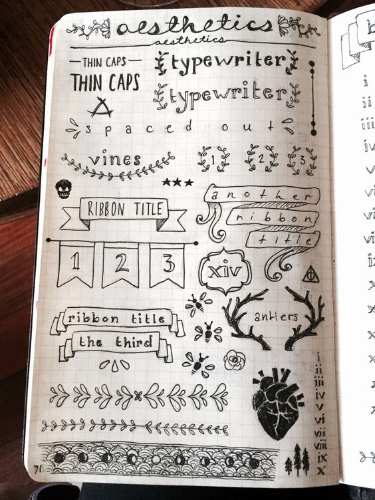 aesthetics
aesthetics
THIN CAPS
THIN CAPS
typewriter
typewriter
spaced out
vines
1 2 3
RIBBON TITLE
another
ribbon
title
1 2 3
xiv
ribbon title
the third
antlers
i
ii
iii
iv
v
vi
vii
viii
ix
x
i
ii
iii
iv
v
vi
vii